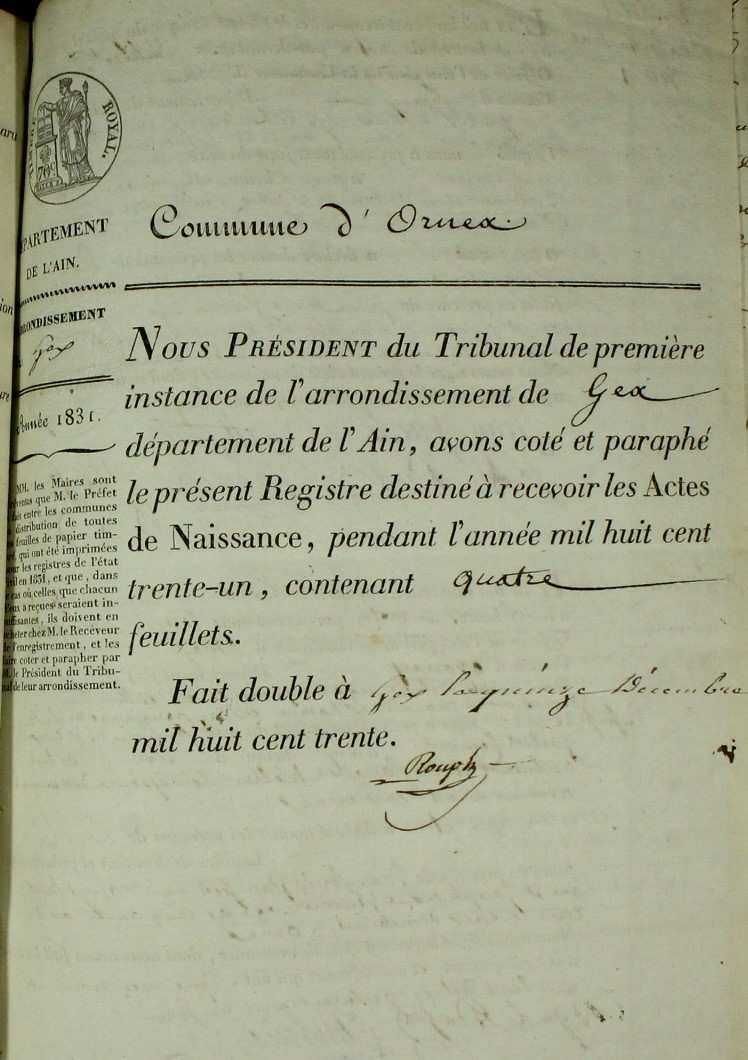 ROYAL.
70c
PARTEMENT
DE L'AIN.
RONDISSEMENT
Gex
Année 1831.
MM. les Maires sont
venus que M. le Préfet
fait entre les communes
distribution de toutes
feuilles de papier tim-
qui ont été imprimées
les registres de l'état
en 1831, et que, dans
cas où celles que chacun
a reçues seraient in-
santes, ils doivent en
eter chez M. le Receveur
l'enregistrement, et les
coter et parapher par
le Président du Tribu-
de leur arrondissement.
Commune d'Ornex.
NOUS PRÉSIDENT du Tribunal de première
instance de l'arrondissement de Gex
département de l'Ain, avons coté et paraphé
le présent Registre destiné à recevoir les Actes
de Naissance, pendant l'année mil huit cent
trente-un, contenant quatre
feuillets.
Fait double à Gex le quinze Décembre
mil huit cent trente.